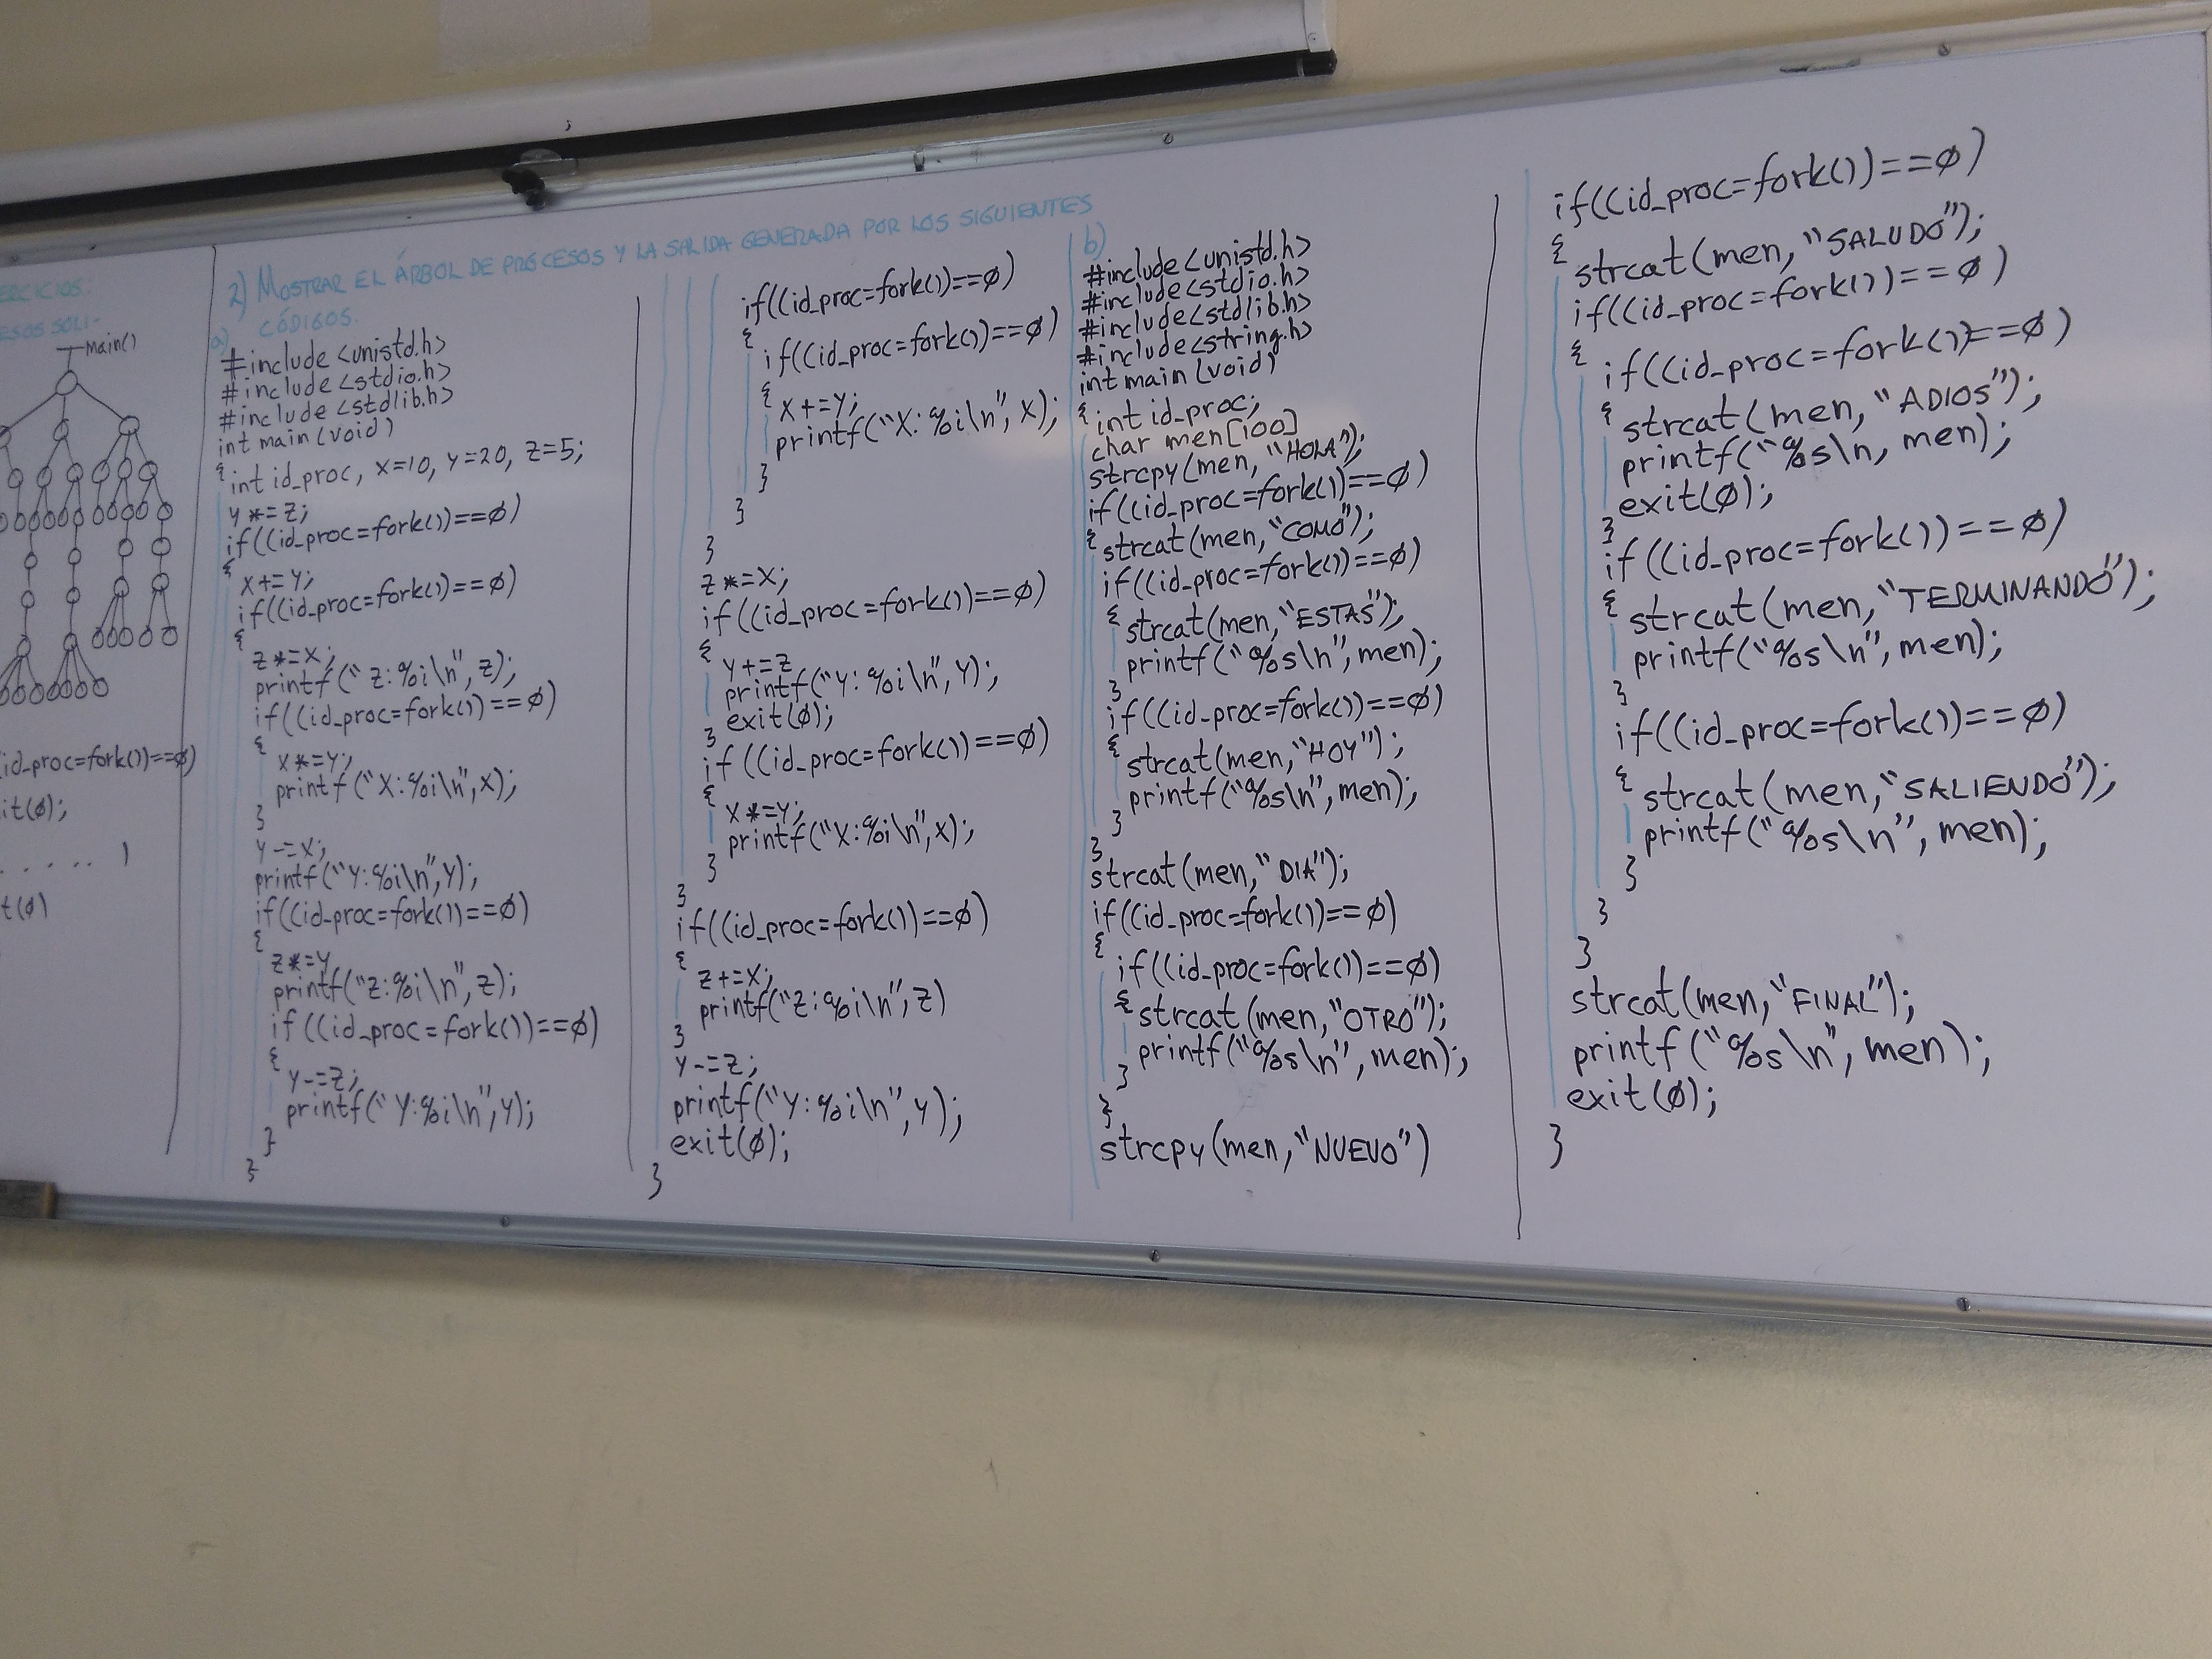 ERCICIOS:
ESOS SOLI-
main()
id_proc=fork())==∅)
it(∅);
. . . . . )
t(∅)
2) MOSTRAR EL ÁRBOL DE PROCESOS Y LA SALIDA GENERADA POR LOS SIGUIENTES
CÓDIGOS.
a)
#include <unistd.h>
#include <stdio.h>
#include <stdlib.h>
int main(void)
{ int id_proc, x=10, y=20, z=5;
y*=z;
if((id_proc=fork())==∅)
{
x+=y;
if((id_proc=fork())==∅)
{
z*=x;
printf("z:%i\n", z);
if((id_proc=fork())==∅)
{
x*=y;
printf("X:%i\n",x);
}
y-=x;
printf("Y:%i\n",y);
if((id_proc=fork())==∅)
{
z*=y
printf("z:%i\n",z);
if((id_proc=fork())==∅)
{
y-=z;
printf("Y:%i\n",y);
}
}
if((id_proc=fork())==∅)
{
if((id_proc=fork())==∅)
{
x+=y;
printf("X:%i\n", x);
}
}
}
z*=x;
if((id_proc=fork())==∅)
{
y+=z
printf("Y:%i\n", y);
exit(∅);
}
if((id_proc=fork())==∅)
{
x*=y;
printf("X:%i\n",x);
}
}
if((id_proc=fork())==∅)
{
z+=x;
printf("z:%i\n",z)
}
y-=z;
printf("Y:%i\n",y);
exit(∅);
}
b)
#include<unistd.h>
#include<stdio.h>
#include<stdlib.h>
#include<string.h>
int main(void)
{ int id_proc;
char men[100]
strcpy(men, "HOLA");
if((id_proc=fork())==∅)
{ strcat(men,"COMO");
if((id_proc=fork())==∅)
{ strcat(men,"ESTAS");
printf("%s\n",men);
}
if((id_proc=fork())==∅)
{ strcat(men,"HOY");
printf("%s\n",men);
}
}
strcat(men,"DIA");
if((id_proc=fork())==∅)
{
if((id_proc=fork())==∅)
{ strcat(men,"OTRO");
printf("%s\n",men);
}
}
strcpy(men,"NUEVO")
if((id_proc=fork())==∅)
{
strcat(men,"SALUDO");
if((id_proc=fork())==∅)
{
if((id_proc=fork())==∅)
{
strcat(men,"ADIOS");
printf("%s\n, men);
exit(∅);
}
if((id_proc=fork())==∅)
{
strcat(men,"TERMINANDO");
printf("%s\n",men);
}
if((id_proc=fork())==∅)
{
strcat(men,"SALIENDO");
printf("%s\n", men);
}
}
}
strcat(men,"FINAL");
printf("%s\n", men);
exit(∅);
}